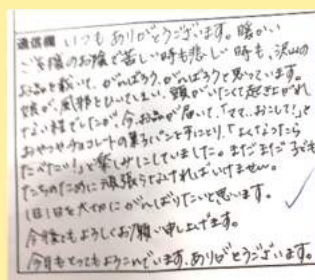 通信欄 いつもありがとうございます。暖かい
ご支援のお陰で苦しい時も悲しい時も、沢山の
お品を戴いて、がんばろう、がんばろうと思っています。
娘が、風邪をひいてしまい、頭がいたくて起き上がれ
ない程でしたが、今、お品が届いて、「ママ、おこして!」と
おやつやチョコレートの菓子パンを手にとり、「よくなったら
たべたい!」と楽しみにしていました。まだまだ子ども
たちのために頑張らなければいけません。
1日1日を大切にがんばりたいと思います。
今後ともよろしくお願い申し上げます。
今月もとってもよろこんでいます。ありがとうございます。